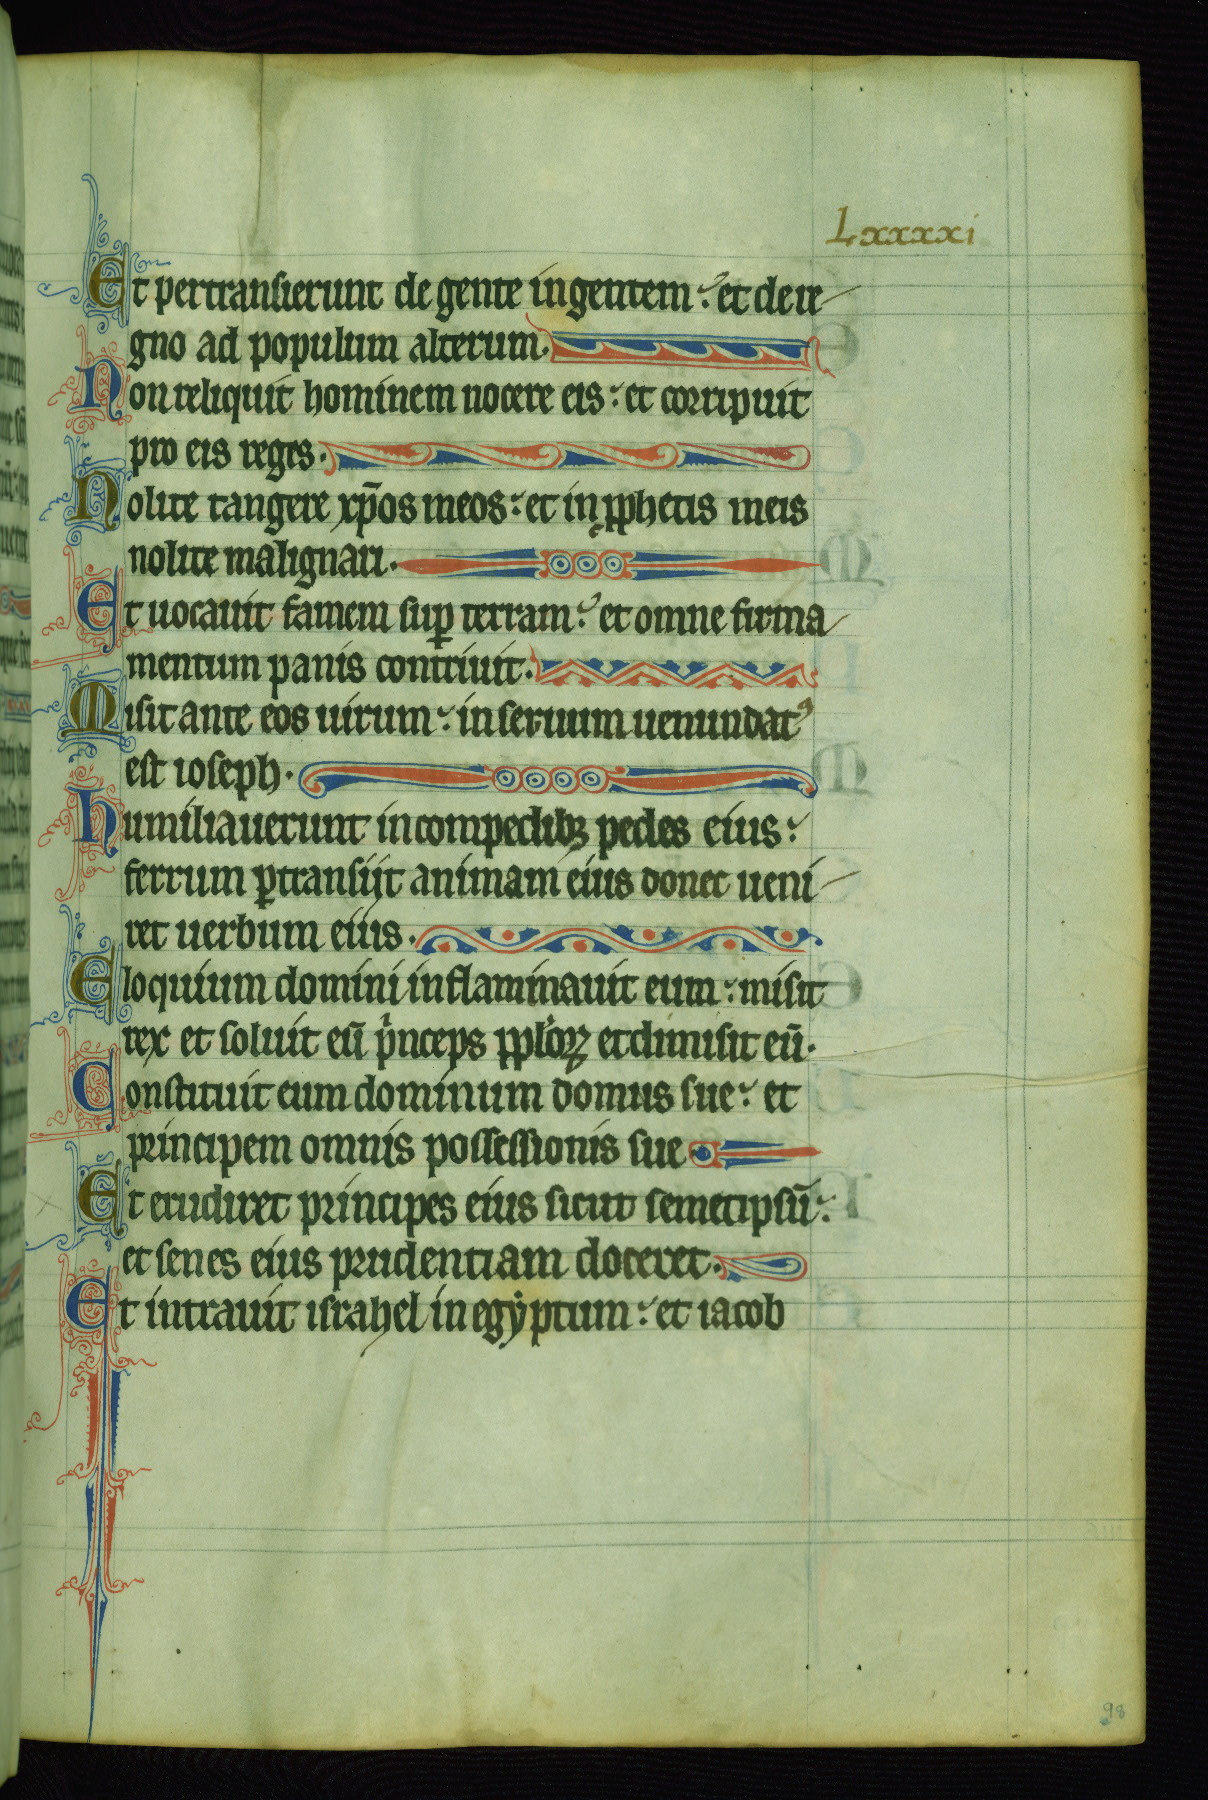 Lxxxxi
Et pertransierunt de gente in gentem : et de re
gno ad populum alterum.
Non reliquit hominem nocere eis : et corripuit
pro eis reges.
Nolite tangere xp̄os meos : et in ꝓphetis meis
nolite malignari.
Et uocauit famem suꝑ terram : et omne firma
mentum panis contriuit.
Misit ante eos uirum : in seruum uenundatꝰ
est ioseph.
Humiliauerunt in compedibꝫ pedes eius :
ferrum ꝑtransijt animam eius donec ueni
ret uerbum eius.
Eloquium domini inflammauit eum : misit
rex et soluit eū pͥnceps ppl'oꝝ et dimisit eū.
Constituit eum dominum domus sue : et
principem omnis possessionis sue
Et erudiret principes eius sicut semetipsū :
et senes eius prudentiam doceret.
Et intrauit israhel in egẏptum : et iacob
98